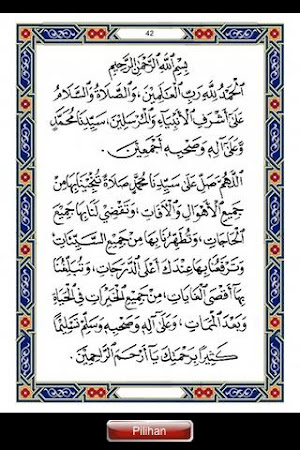 42
بِسْمِ اللهِ الرَّحْمٰنِ الرَّحِيْمِ
اَلْحَمْدُ لِلّٰهِ رَبِّ الْعَالَمِيْنَ، وَالصَّلَاةُ وَالسَّلَامُ
عَلَىٰ أَشْرَفِ الْأَنْبِيَاءِ وَالْمُرْسَلِيْنَ، سَيِّدِنَا مُحَمَّدٍ
وَعَلَىٰ آلِهِ وَصَحْبِهِ أَجْمَعِيْنَ.
اَللّٰهُمَّ صَلِّ عَلَىٰ سَيِّدِنَا مُحَمَّدٍ صَلَاةً تُنْجِيْنَا بِهَا مِنْ
جَمِيْعِ الْأَهْوَالِ وَالْآفَاتِ، وَتَقْضِيْ لَنَا بِهَا جَمِيْعَ
الْحَاجَاتِ، وَتُطَهِّرُنَا بِهَا مِنْ جَمِيْعِ السَّيِّئَاتِ،
وَتَرْفَعُنَا بِهَا عِنْدَكَ أَعْلَى الدَّرَجَاتِ، وَتُبَلِّغُنَا
بِهَا أَقْصَى الْغَايَاتِ، مِنْ جَمِيْعِ الْخَيْرَاتِ فِي الْحَيَاةِ
وَبَعْدَ الْمَمَاتِ، وَعَلَىٰ آلِهِ وَصَحْبِهِ وَسَلِّمْ تَسْلِيْمًا
كَثِيْرًا بِرَحْمَتِكَ يَا أَرْحَمَ الرَّاحِمِيْنَ.
Pilihan